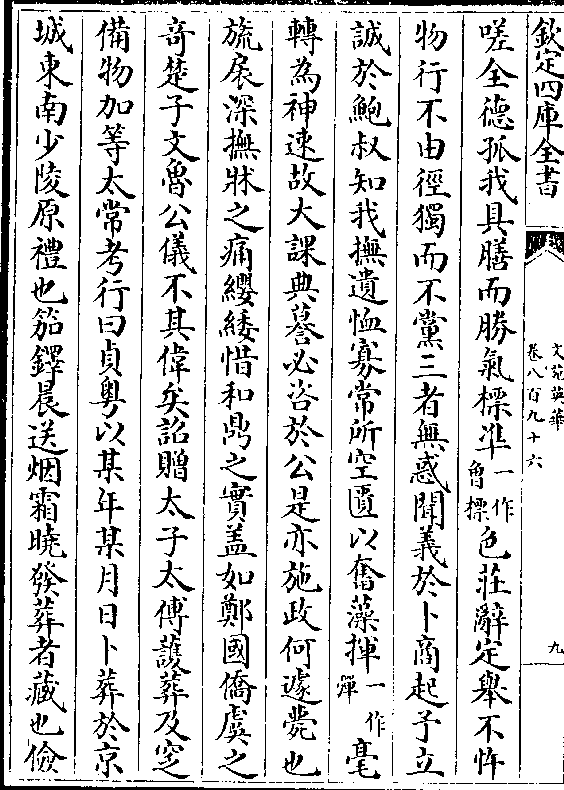 欽定四庫全書
文苑英華
卷八百九十六
九
嗟全德孤我具膳而勝氣標準一作會標色莊辭定舉不忤
物行不由徑獨而不黨三者無惑聞義於卜商起予立
誠於鮑叔知我撫遺恤寡常所空匱以奮藻揮一作彈毫
轉為神速故大課典謩必咨於公是亦施政何遽薨也
旒扆深撫牀之痛纓緌惜和鼎之實盖如鄭國僑虞之
竒楚子文魯公儀不其偉矣詔贈太子太傅護葬及窆
備物加等太常考行曰貞粤以某年某月日卜葬於京
城東南少陵原禮也笳鐸晨送烟霜曉發葬者藏也儉